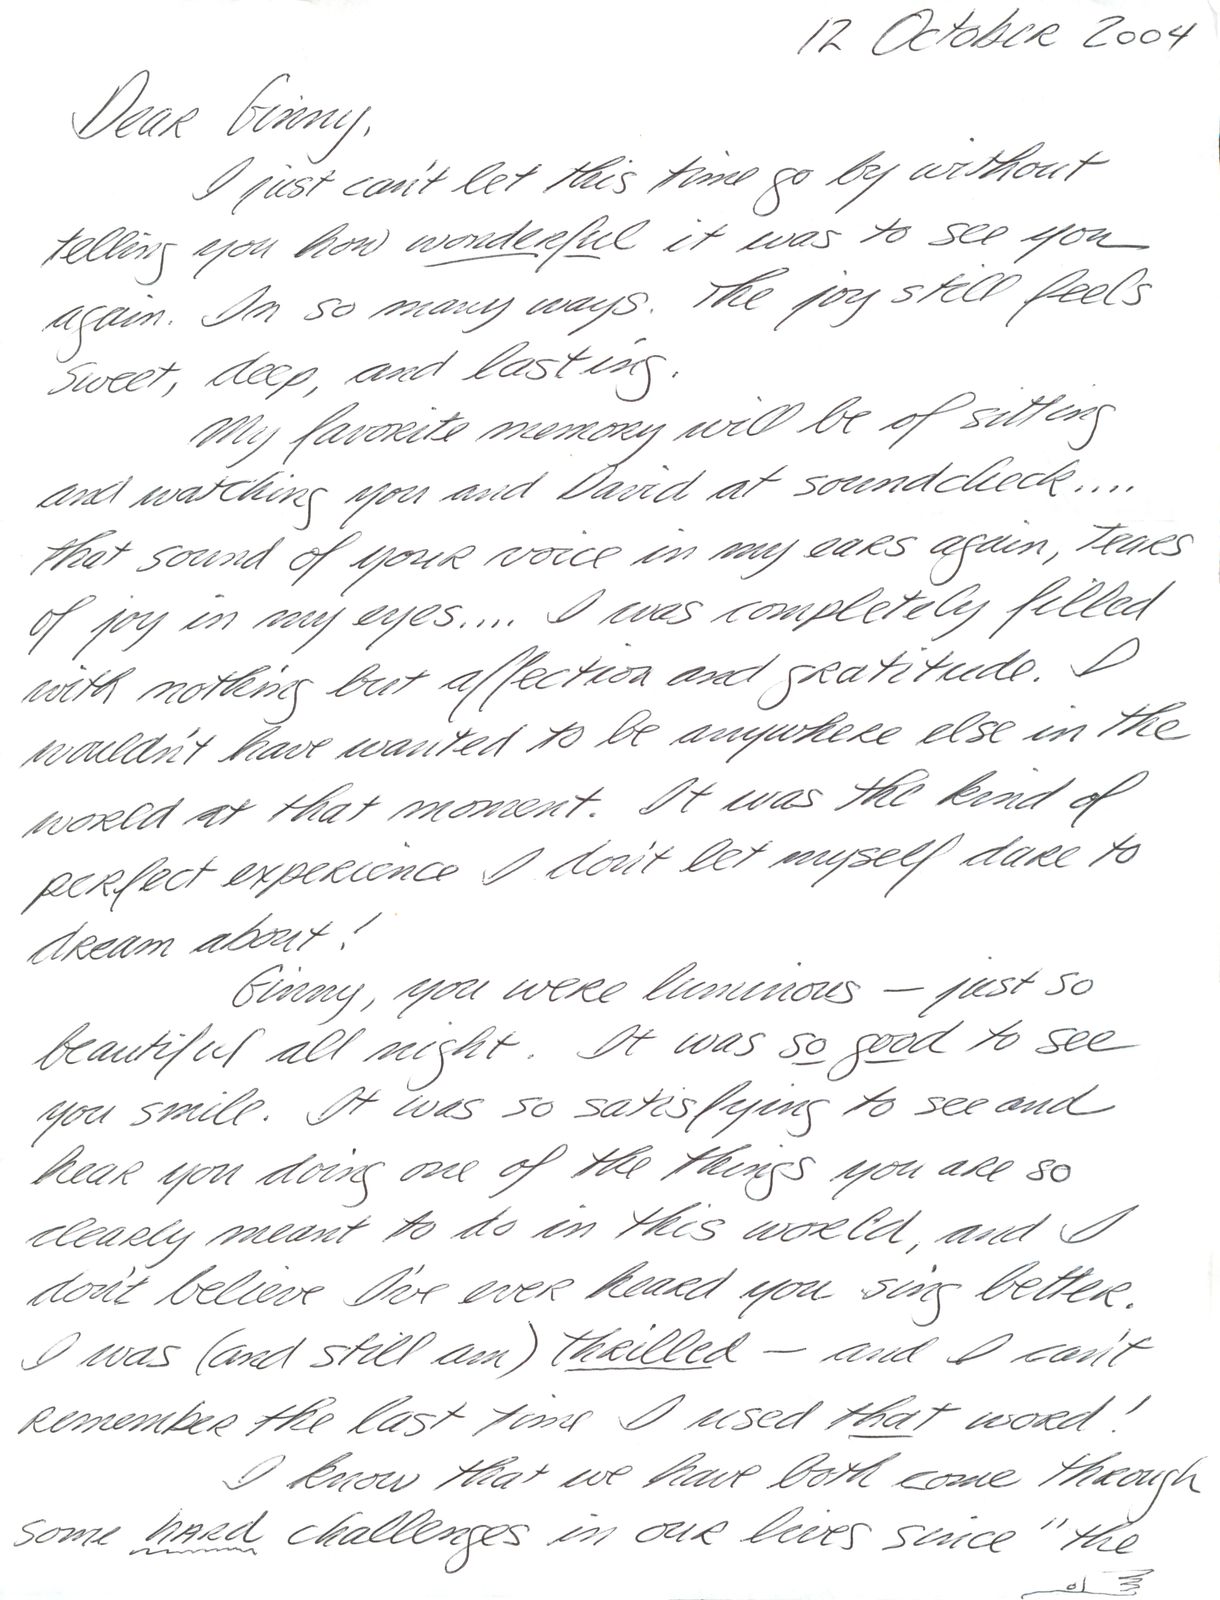 12 October 2004
Dear Ginny,
I just can't let this time go by without
telling you how wonderful it was to see you
again. In so many ways. The joy still feels
sweet, deep, and lasting.
My favorite memory will be of sitting
and watching you and David at soundcheck....
that sound of your voice in my ears again, tears
of joy in my eyes.... I was completely filled
with nothing but affection and gratitude. I
wouldn't have wanted to be anywhere else in the
world at that moment. It was the kind of
perfect experience I don't let myself dare to
dream about!
Ginny, you were luminous — just so
beautiful all night. It was so good to see
you smile. It was so satisfying to see and
hear you doing one of the things you are so
clearly meant to do in this world, and I
don't believe I've ever heard you sing better.
I was (and still am) thrilled — and I can't
remember the last time I used that word!
I know that we have both come through
some hard challenges in our lives since "the